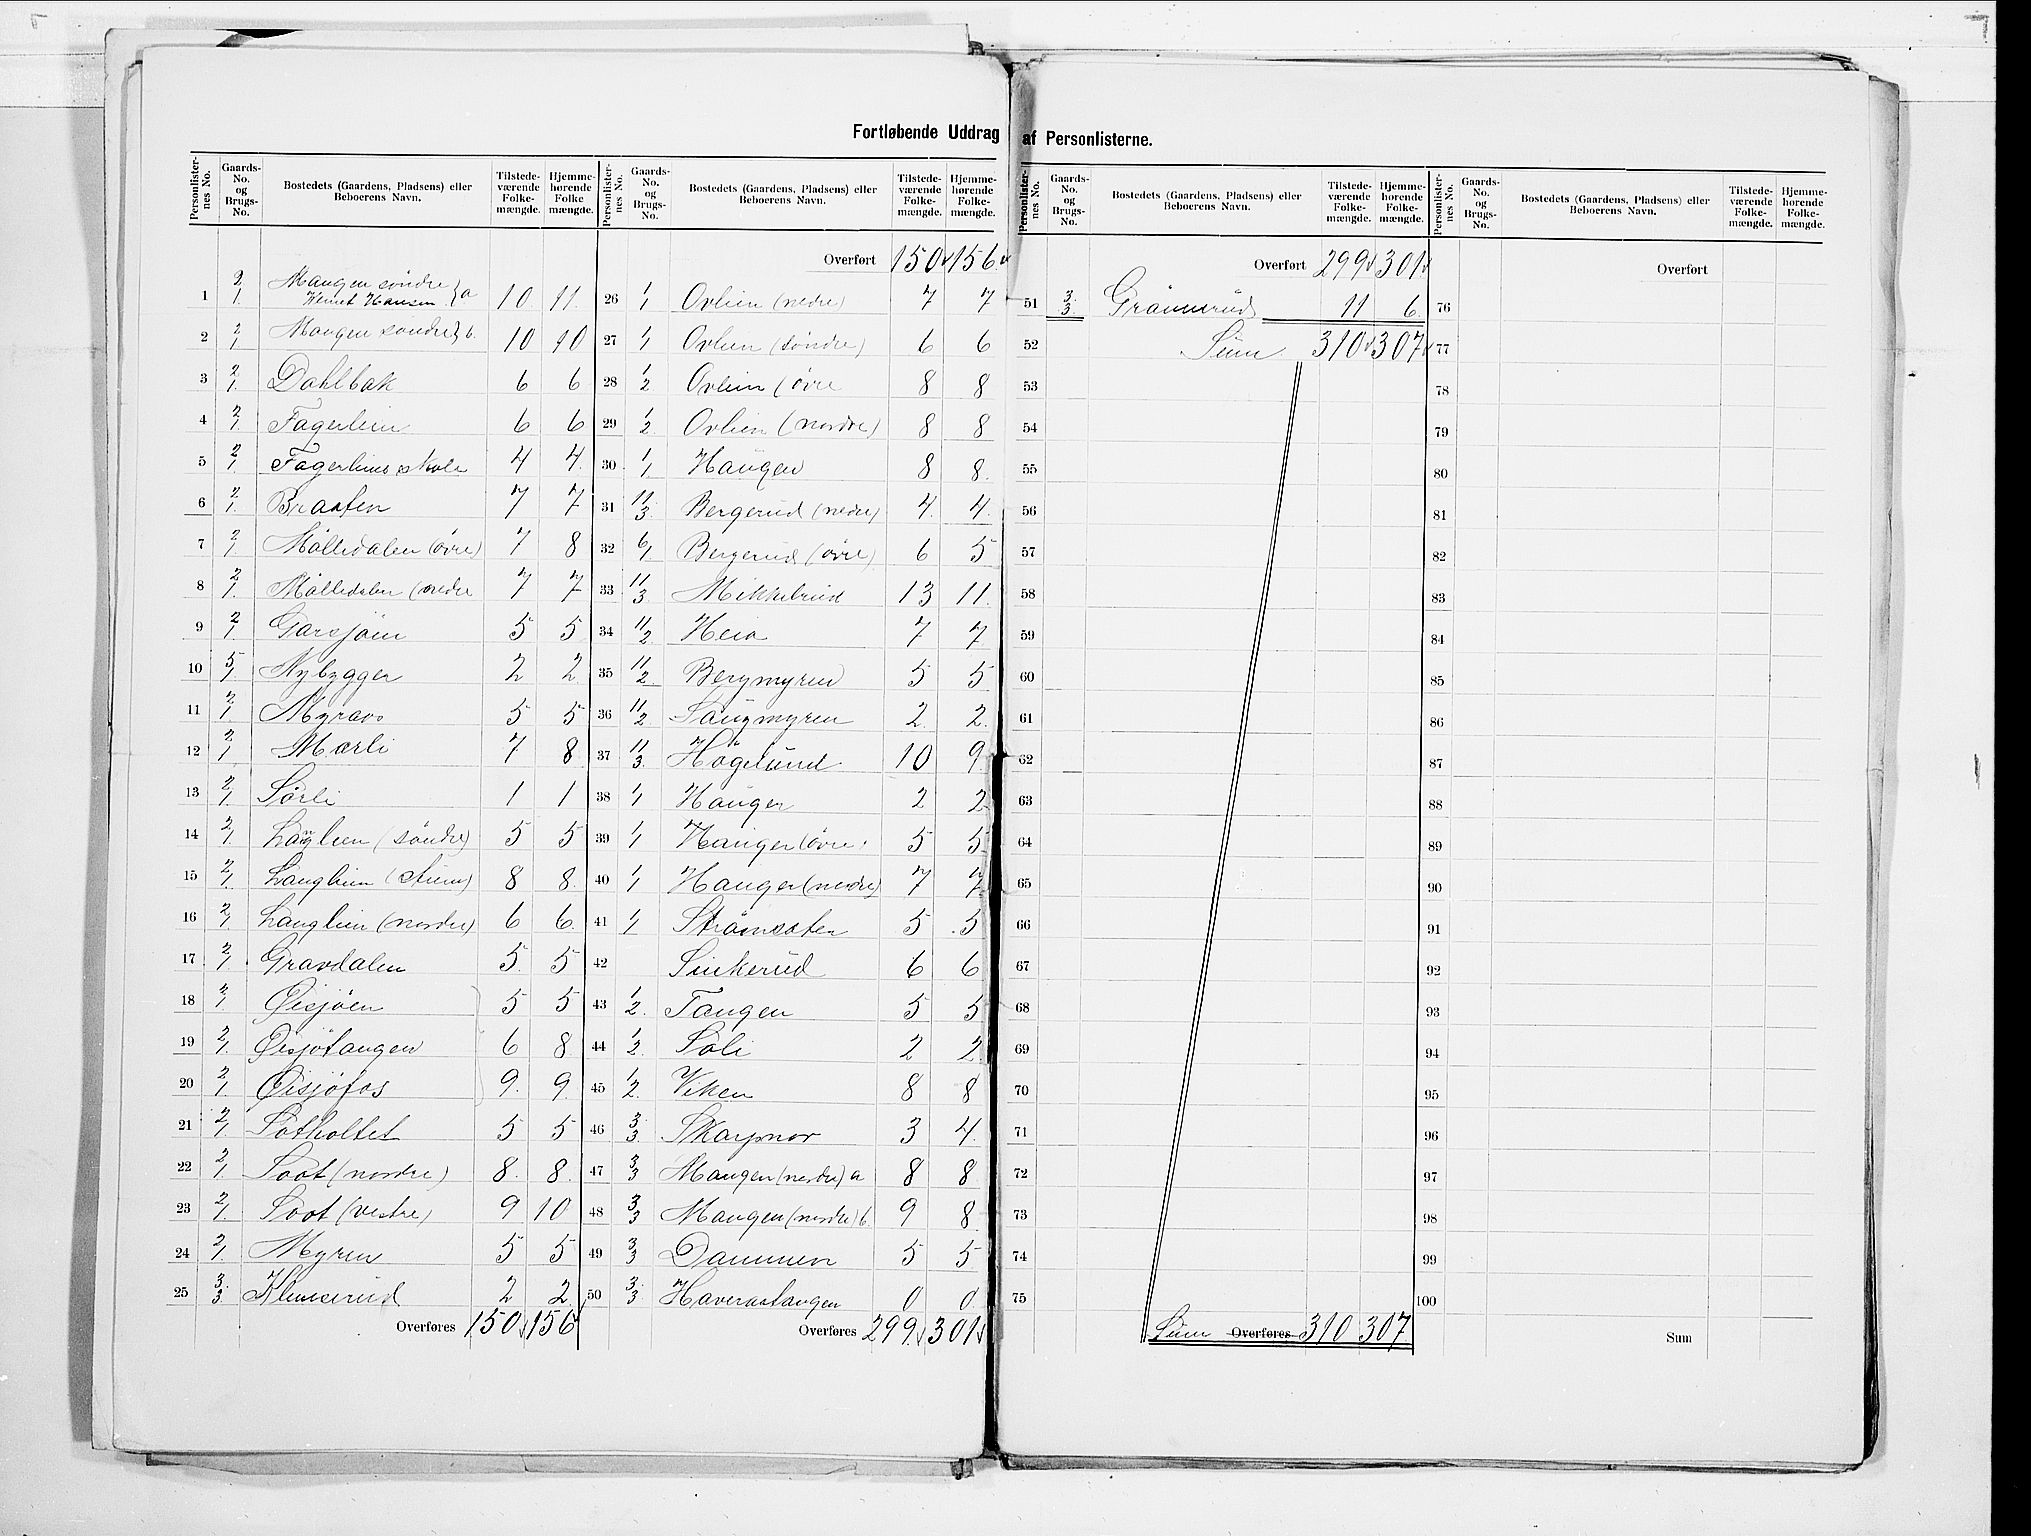 Fortløbende Uddrag af Personlisterne.
Personlister-nes No. Gaards-No. og Brugs-No. Bostedets (Gaardens, Pladsens) eller Beboerens Navn. Tilstede-værende Folke-mængde. Hjemme-hørende Folke mængde.
1 2/1 Mangen søndre } a 10 11
Hansen
2 2/1 Mangen søndre } b. 10 10
3 2/1 Dahlbak 6 6
4 2/1 Fagerlien 6 6
5 2/1 Fagerliens skole 4 4
6 2/1 Braaten 7 7
7 2/1 Mölledalen (övre) 7 8
8 2/1 Mölledalen (nedre 7 7
9 2/1 Garsjöen 5 5
10 5/1 Nybygger 2 2
11 2/1 Myraas 5 5
12 2/1 Mærli 7 8
13 2/1 Sörli 1 1
14 2/1 Langlien (söndre) 5 5
15 2/1 Langlien 8 8
16 2/1 Langlien (nordre) 6 6
17 2/1 Gravdalen 5 5
18 2/1 Øisjöen 5 5
19 2/1 Øisjötangen 6 8
20 2/1 Øisjöfos 9 9
21 2/1 Sotholtet 5 5
22 2/1 Soot (nordre) 8 8
23 2/1 Soot (vestre) 9 10
24 2/1 Myren 5 5
25 3/3 Klemserud 2 2
Overføres 150 156
Personlister-nes No. Gaards-No. og Brugs-No. Bostedets (Gaardens, Pladsens) eller Beboerens Navn. Tilstede-værende Folke-mængde. Hjemme-hørende Folke-mængde.
Overført 150 156
26 1/1 Ovlien (nedre) 7 7
27 1/1 Ovlien (söndre) 6 6
28 1/2 Ovlien (övre 8 8
29 1/2 Ovlien (nordre) 8 8
30 1/1 Haugen 8 8
31 11/3 Bergerud (nedre) 4 4
32 6/1 Bergerud (övre) 6 5
33 11/3 Mikkelsrud 13 11
34 11/2 Heia 7 7
35 11/2 Bergmyren 5 5
36 11/2 Saugmyren 2 2
37 11/3 Högelund 10 9
38 1/1 Hauger 2 2
39 1/1 Hauger (övre) 5 5
40 1/1 Hauger (nedre) 7 7
41 1/1 Strömsæter 5 5
42 Sinkerud 6 6
43 1/2 Tangen 5 5
44 1/2 Soli 2 2
45 1/2 Viken 8 8
46 3/3 Skarpnor 3 4
47 3/3 Mangen (nordre) a 8 8
48 3/3 Mangen (nordre) b. 9 8
49 3/3 Dammen 5 5
50 3/3 Haverastangen 0 0
Overføres 299 301
Personlister-nes No. Gaards-No. og Brugs-No. Bostedets (Gaardens, Pladsens) eller Beboerens Navn. Tilstede-værende Folke-mængde. Hjemme-hørende Folke-mængde.
Overført 299 301
51 3/3 Grönnerud 11 6
52 Sum 310 307
53
54
55
56
57
58
59
60
61
62
63
64
65
66
67
68
69
70
71
72
73
74
75
Sum Overføres 310 307
Personlister-nes No. Gaards-No. og Brugs-No. Bostedets (Gaardens, Pladsens) eller Beboerens Navn. Tilstede-værende Folke-mængde. Hjemme-hørende Folke-mængde.
Overført
76
77
78
79
80
81
82
83
84
85
86
87
88
89
90
91
92
93
94
95
96
97
98
99
100
Sum